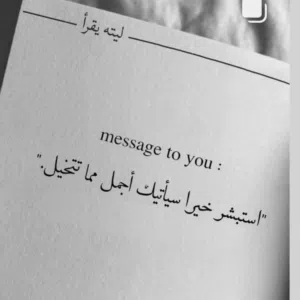 ليته يقرأ
message to you :
"استبشر خيرا سيأتيك أجمل مما تتخيل."